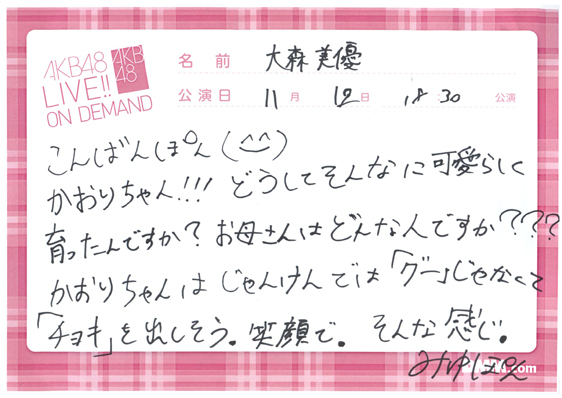 AKB48
LIVE!!
ON DEMAND
AKB
48
名前 大森美優
公演日 11月 12日 18:30 公演
こんばんぽん(^^)
かおりちゃん!!! どうしてそんなに可愛らしく
育ったんですか? お母さんはどんな人ですか???
かおりちゃんはじゃんけんでは「グー」じゃなくて
「チョキ」を出しそう。笑顔で。そんな感じ。
みゆぽん
.com